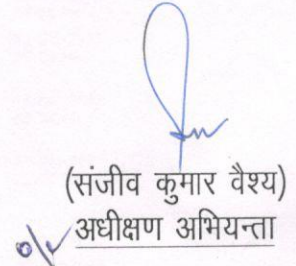 (संजीव कुमार वैश्य)
अधीक्षण अभियन्ता